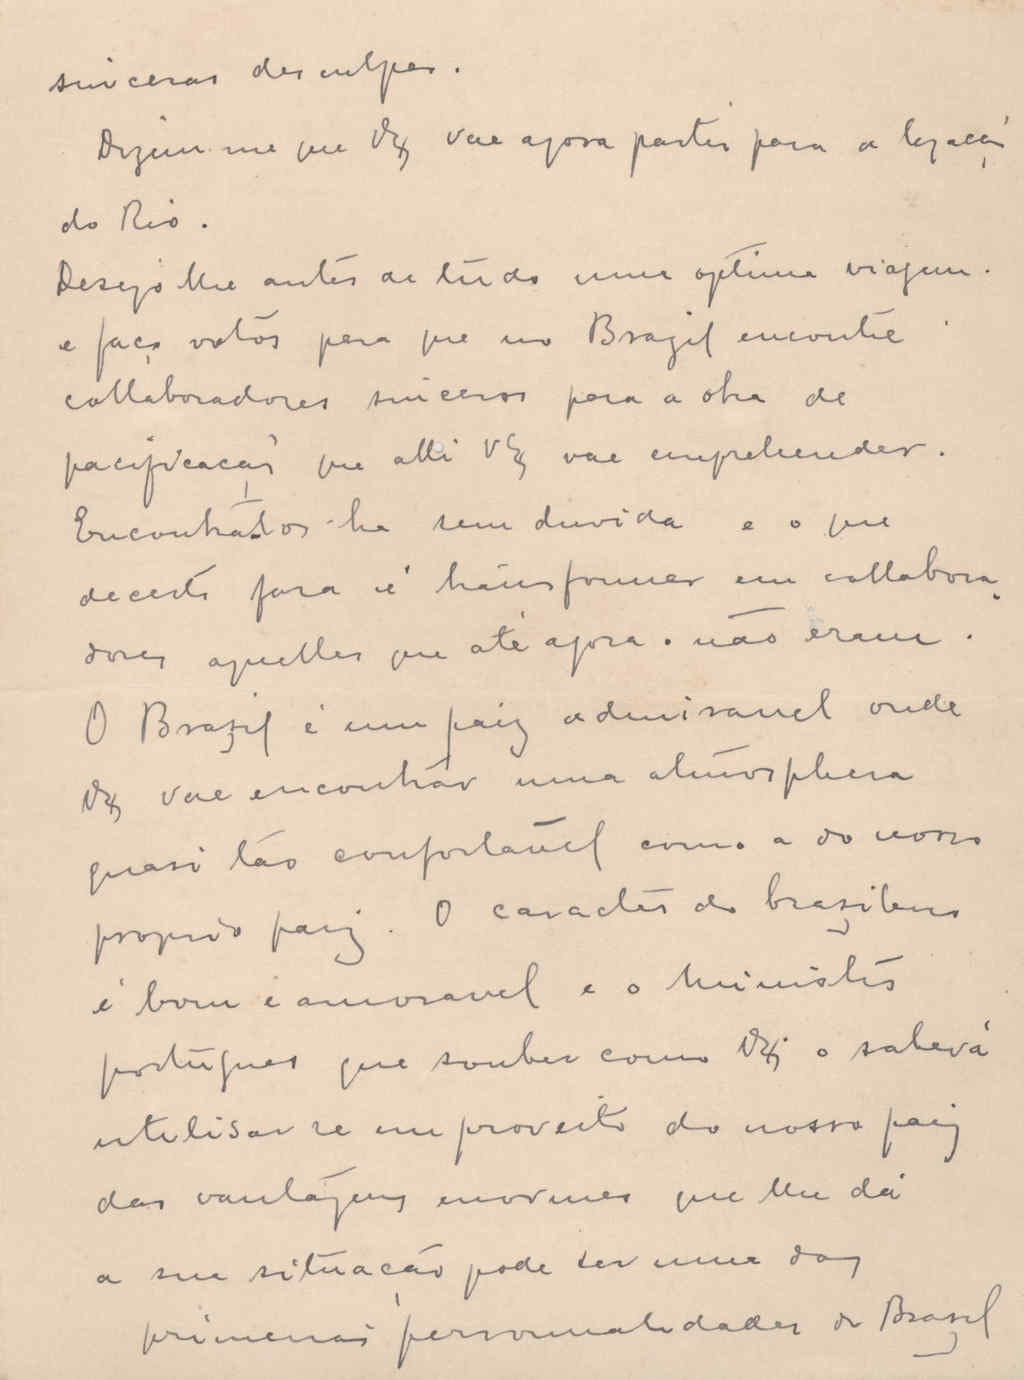 sinceras desculpas.
Dizem-me que V Ex vae agora partir para a legação
do Rio.
Desejo lhe antes de tudo uma optima viagem.
e faço votos para que no Brazil encontre
collaboradores sinceros para a obra de
pacificação que alli V Ex vae emprehender.
Encontral-os-ha sem duvida e o que
decerto fara é transformar em collabora-
dores aquelles que até agora o não eram.
O Brazil é um paiz admiravel onde
V Ex vae encontrar uma atmosphera
quasi tão confortavel como a do nosso
proprio paiz. O caracter do brazileiro
é bom e amoravel e o Ministro
portuguez que souber como V Ex o saberá
utilisar-se em proveito do nosso paiz
das vantagens enormes que lhe dá
a sua situação pode ser uma das
primeiras personalidades do Brazil